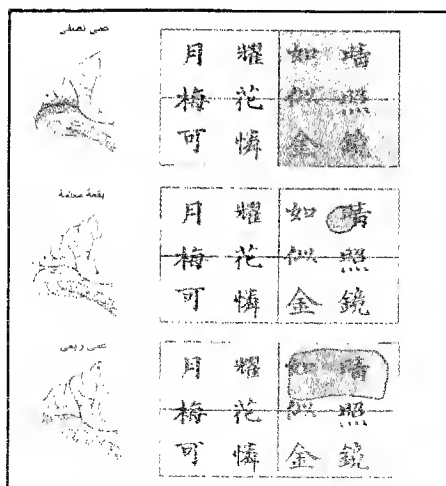 عمى نصفى
月耀如晴
梅花似照
可憐金鏡
بقعة معتمة
月耀如晴
梅花似照
可憐金鏡
عمى ربعى
月耀如晴
梅花似照
可憐金鏡